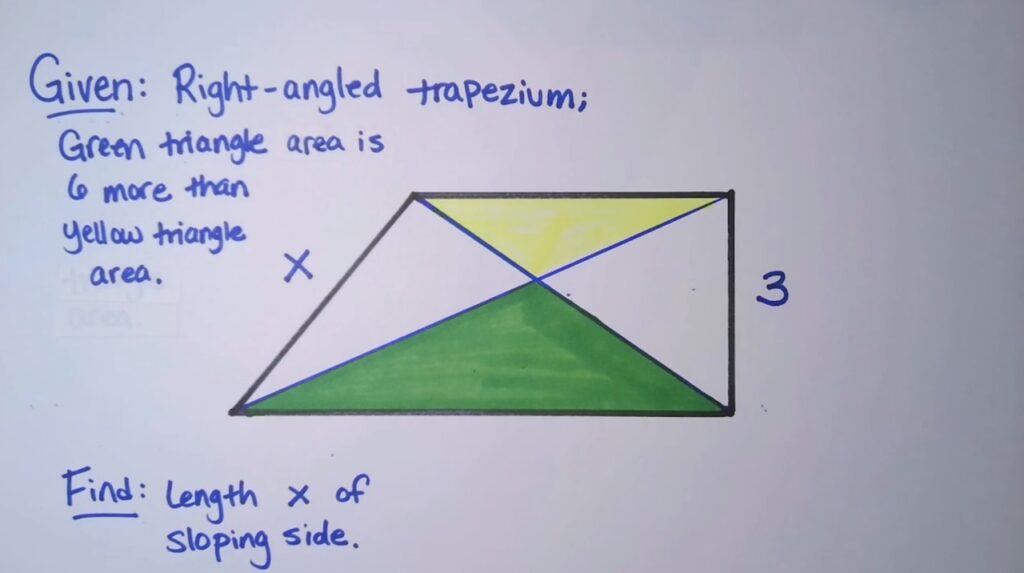 Given: Right-angled trapezium;
Green triangle area is
6 more than
yellow triangle
area.
x
3
Find: Length x of
sloping side.